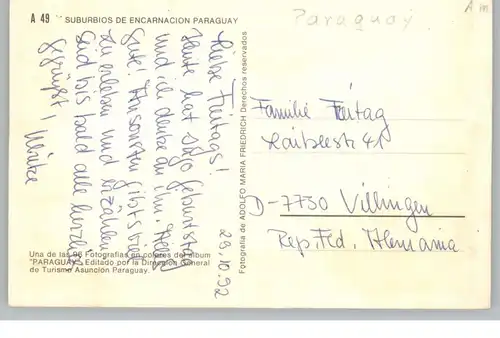 A 49
SUBURBIOS DE ENCARNACION PARAGUAY
Paraguay
29.10.92
Liebe Freitags!
Heute hat Geburtstag
und ich denke an ihn.
Gute! Ansonsten gibt's
zu erleben und erzählen
Seid bis bald alle herzl.
gegrüßt! Ulrike
Una de las 96 Fotografías en colores del álbum
"PARAGUAY". Editado por la Dirección General
de Turismo Asunción Paraguay.
Fotografía de ADOLFO MARIA FRIEDRICH Derechos reservados
Familie Freitag
41
D-7730 Villingen
Rep. Fed. Alemania